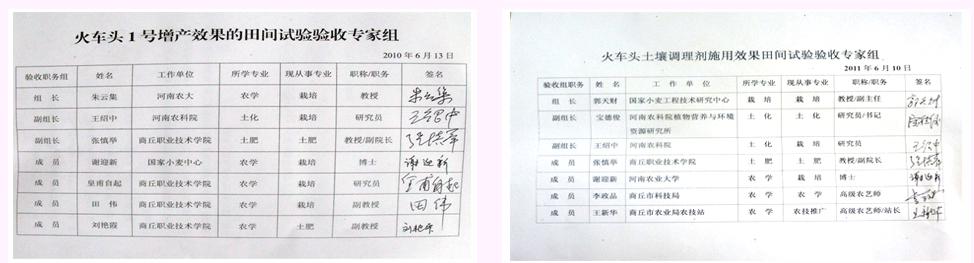 火车头1号增产效果的田间试验验收专家组
2010年6月13日
验收职务组 姓名 工作单位 所学专业 现从事专业 职称/职务 签名
组 长 朱云集 河南农大 农学 栽培 教授 朱云集
副组长 王绍中 河南农科院 土化 栽培 研究员 王绍中
副组长 张慎举 商丘职业技术学院 土肥 土肥 教授/副院长 张慎举
成 员 谢迎新 国家小麦中心 农学 栽培 博士 谢迎新
成 员 皇甫自起 商丘职业技术学院 农学 栽培 研究员 皇甫自起
成 员 田 伟 商丘职业技术学院 农学 栽培 副教授 田伟
成 员 刘艳霞 商丘职业技术学院 农学 土肥 副教授
火车头土壤调理剂施用效果田间试验验收专家组
2011年6月10日
验收组职务 姓 名 工作单位 所学专业 现从事专业 职称/职务 签名
组 长 郭天财 国家小麦工程技术研究中心 栽 培 栽 培 教授/副主任
副组长 宝德俊 河南农科院植物营养与环境资源研究所 土 化 土 化 研究员/书记
副组长 王绍中 河南农科院 土 化 栽 培 研究员 王绍中
成 员 张慎举 商丘职业技术学院 土 肥 土 肥 教授/副院长 张慎举
成 员 谢迎新 河南农业大学 农 学 栽 培 博士 谢迎新
成 员 李政品 商丘市科技局 农 学 农 学 高级农艺师
成 员 王新华 商丘市农业局农技站 农 学 农技推广 高级农艺师/站长